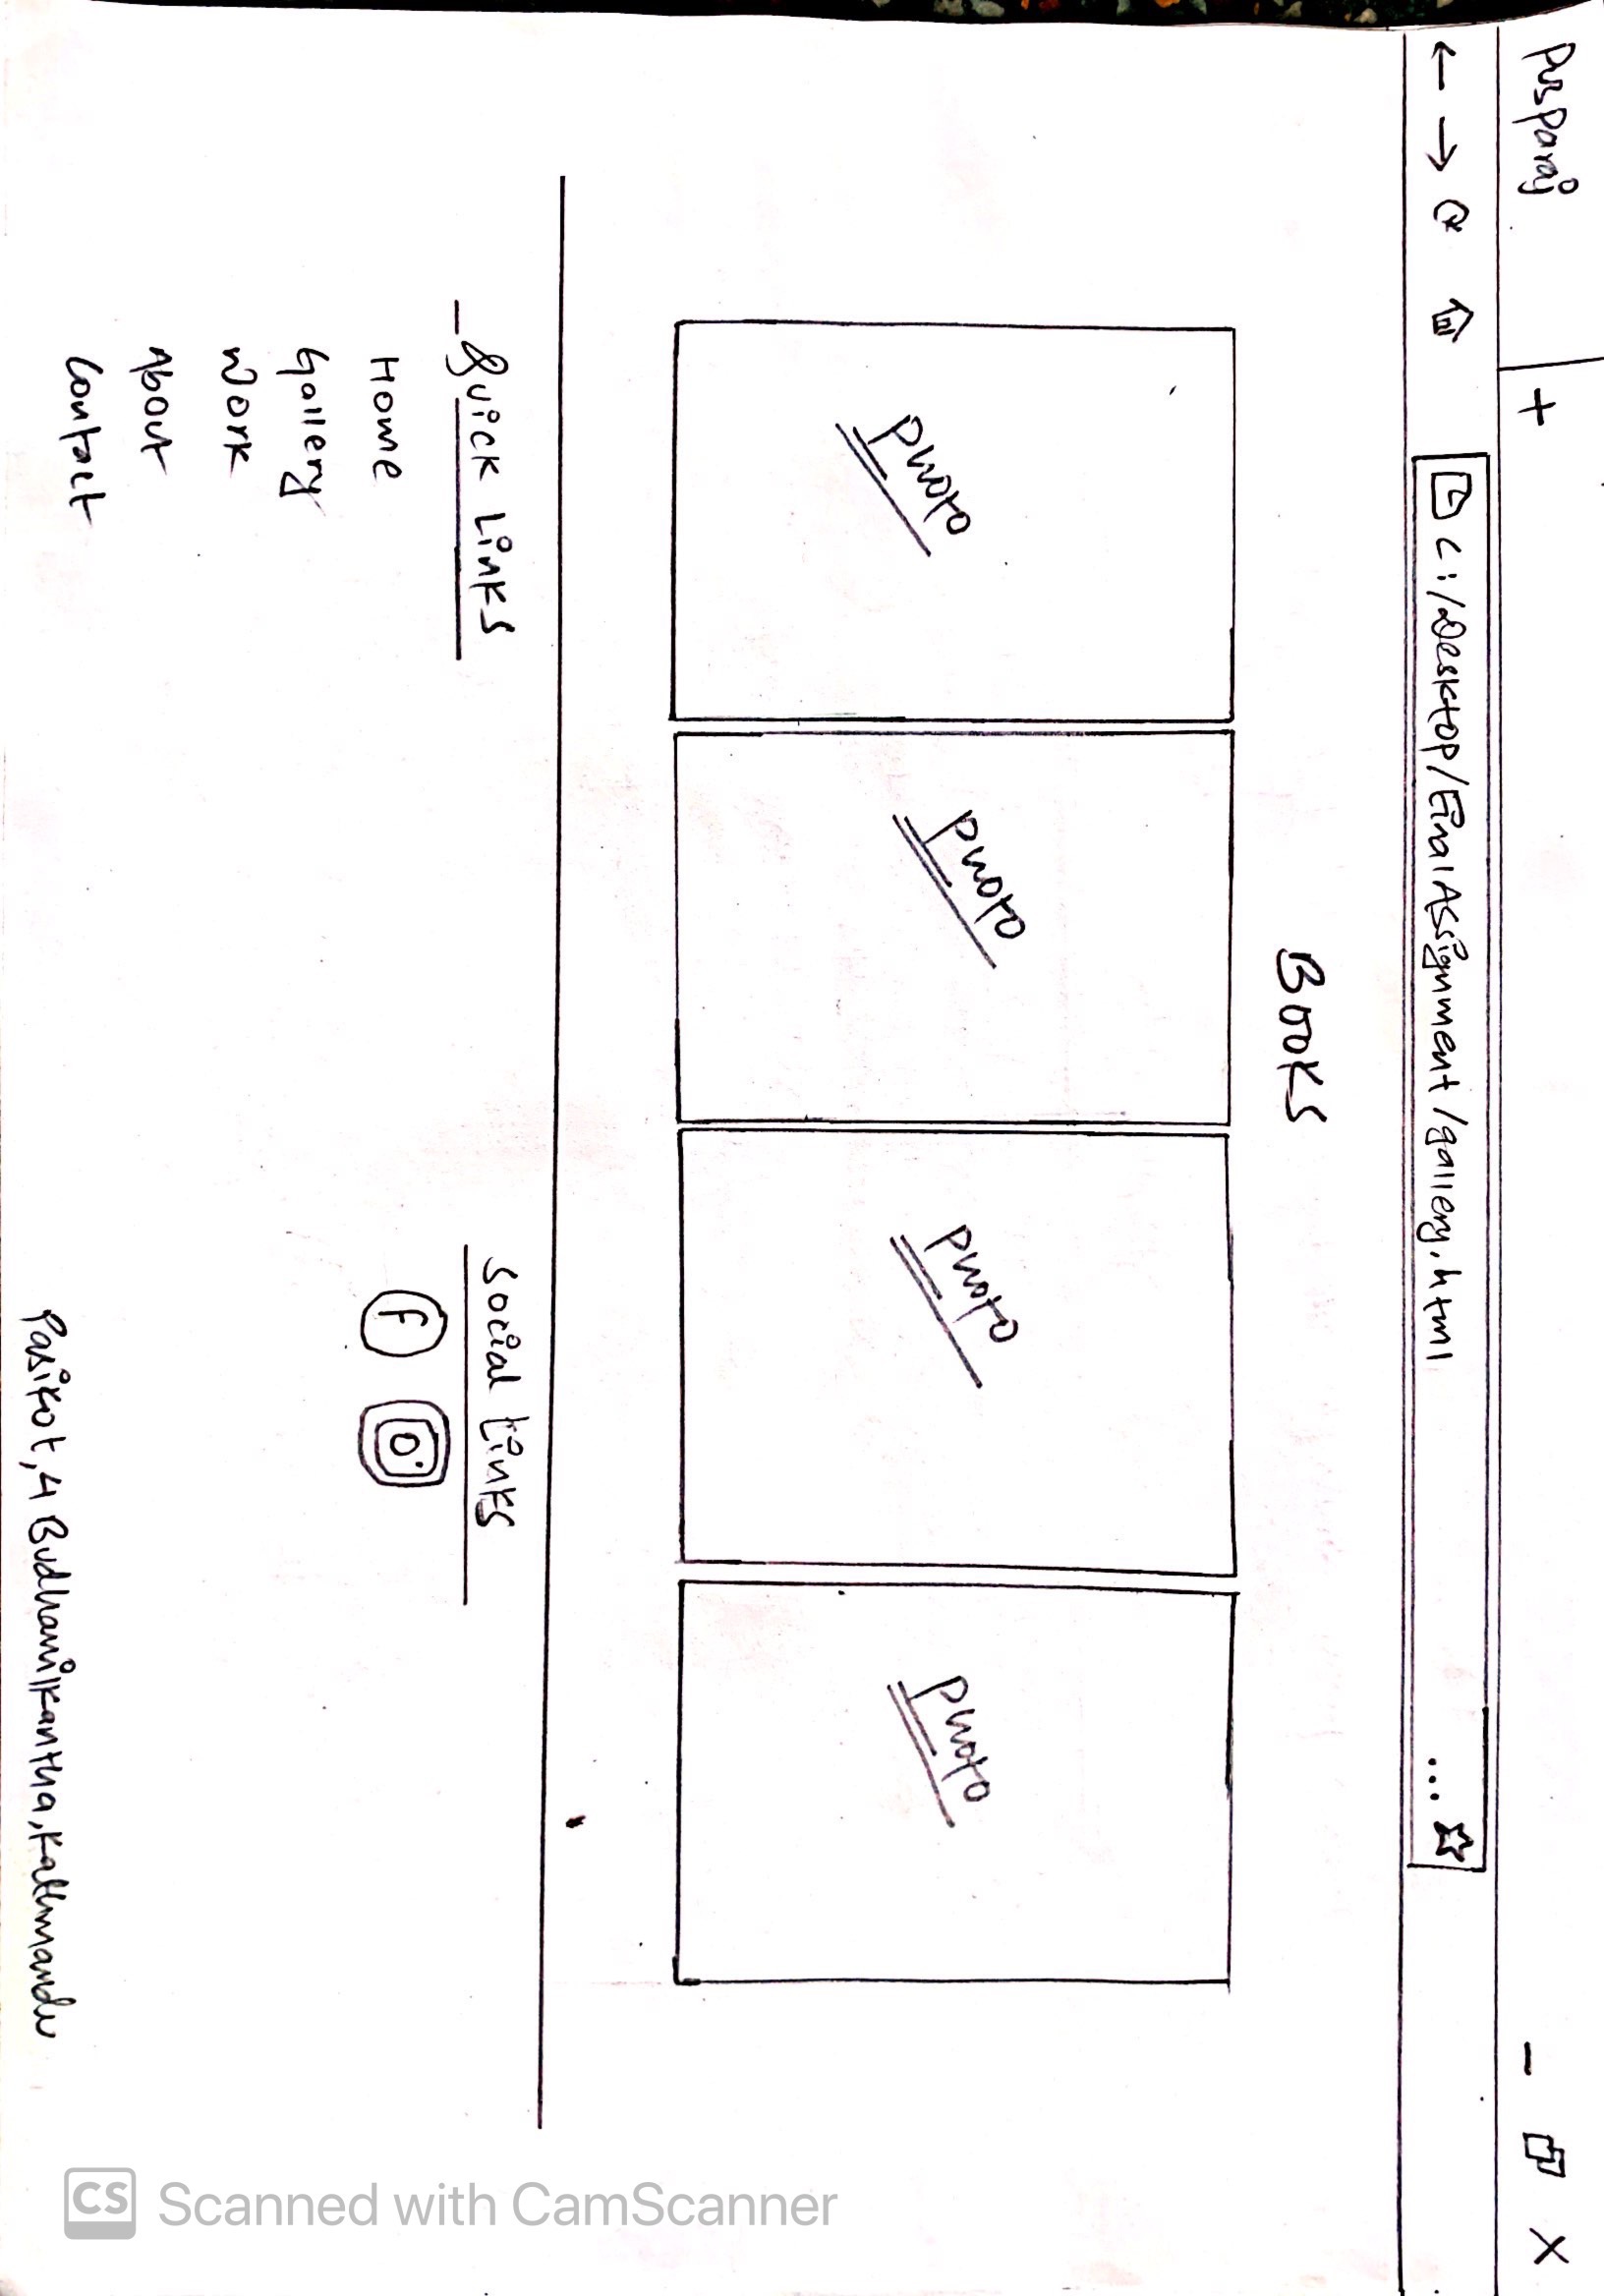 Pusparaj
+
- X
C:/Desktop/Final Assignment/gallery.html ...
Books
Photo
Photo
Photo
Photo
Quick Links
Social Links
Home
f
Gallery
Work
About
Contact
Pasikot, 4 Budhanilkantha, Kathmandu
CS Scanned with CamScanner